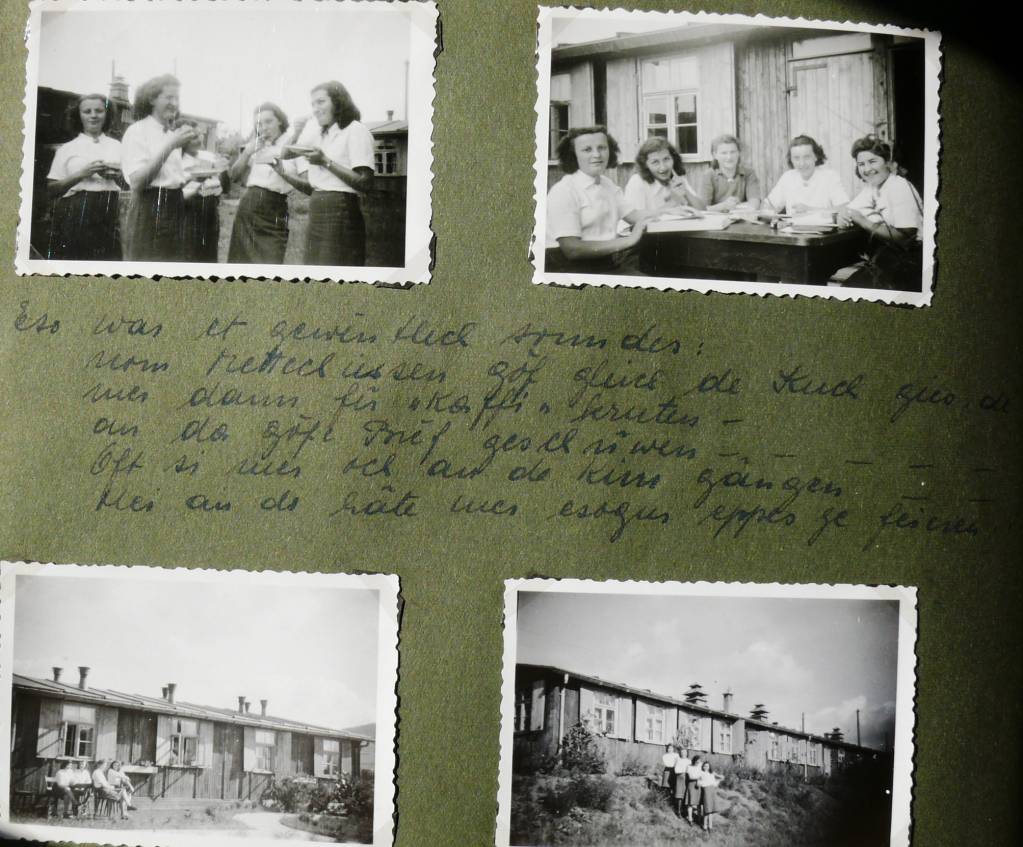 Eso war et gewéntlech sonndes:
vom Mëttechiessen gouf gläich de Kuch
mer dann fir "Kaffi" hruten –
an da góf Bréf geschriwen – – – – –
Oft si mer och an de Kino gángen – –
Mei an do hâte mer esoguer eppes ze feieren